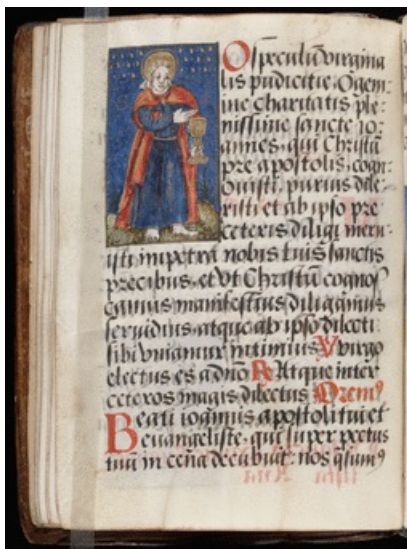 O speculū virgina
lis pudicitie, O gem
me charitatis ple
nissime sancte io
annes, qui Christū
pre apostolis, cogn
ovisti, purius dile
xisti et ab ipso pre
ceteris diligi meru
isti impetra nobis tuis sanctis
precibus, et vt Christū cognos
camus manifestius diligamus
feruidius atque ab ipso dilecti
sibi vniamur intimius V virgo
electus es a dn̄o R Atque inter
ceteros magis dilectus Orem9
Beati ioannis apostoli tui et
euangeliste, qui super pectus
tuū in cena decubuit: nos q̄sum9